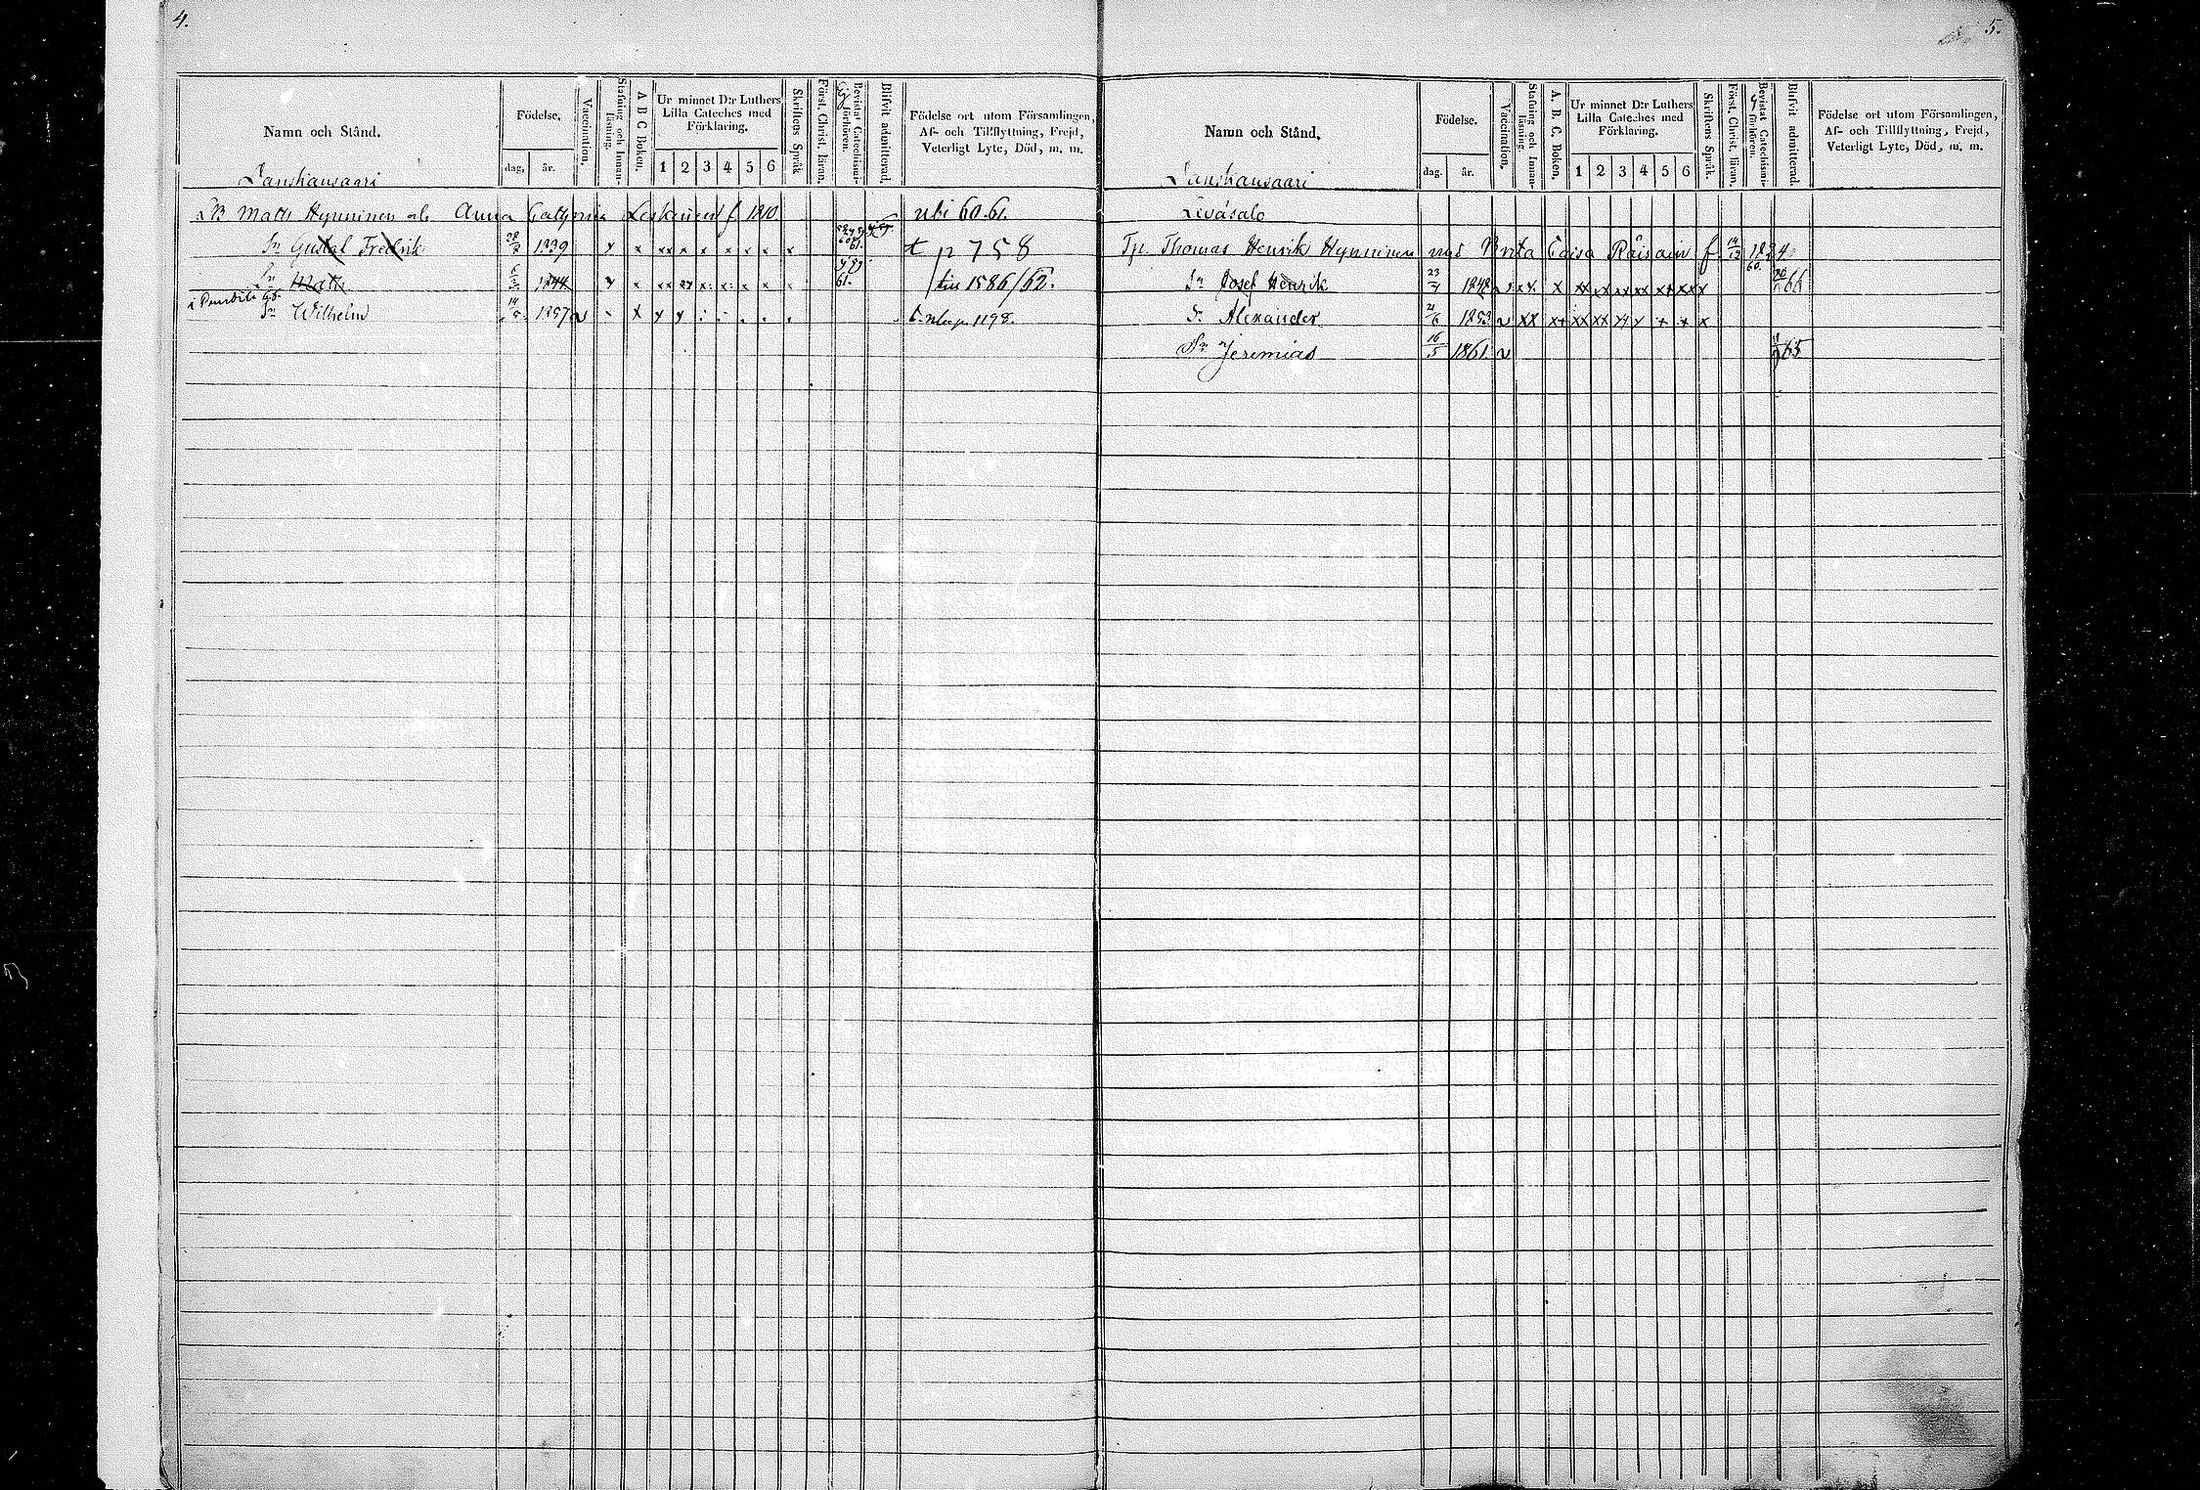 4.
Namn och Stånd.
Födelse.
dag, år.
Vaccination.
Stafning och Innan-läsning.
A B C Boken.
Ur minnet D:r Luthers Lilla Cateches med Förklaring.
1 2 3 4 5 6
Skriftens Språk
Först. Christ. läran.
Ej Bevistat Catechismi-förhören.
Blifvit admitterad.
Födelse ort utom Församlingen,
Af- och Tillflyttning, Frejd,
Veterligt Lyte, Död, m. m.
Lanshansaari
Matts Hynninen Anna Cathrina Leskinen f 1810 ubi 60.61.
Sn Gustaf Fredrik 1839 x x xx x x x x x x t p 758
Sn Matts 1844 61. 1586/62.
Sn Wilhelm 14/5 1857 v 1198.
5.
Namn och Stånd.
Födelse.
dag. år.
Vaccination.
Stafning och Innan-läsning.
A. B. C. Boken.
Ur minnet D:r Luthers Lilla Cateches med Förklaring.
1 2 3 4 5 6
Skriftens Språk.
Först. Christ. läran.
Bevistat Catechismi-förhören.
Blifvit admitterad.
Födelse ort utom Församlingen,
Af- och Tillflyttning, Frejd,
Veterligt Lyte, Död, m. m.
Lanshansaari
Leväsalo
Thomas Henrik Hynninen Caisa Räisäin f 14/12 1824
Sn Josef Henrik 23/4 1848 66
S. Alexander 21/6 1853 v xx
Sn Jeremias 16/5 1861 v 65